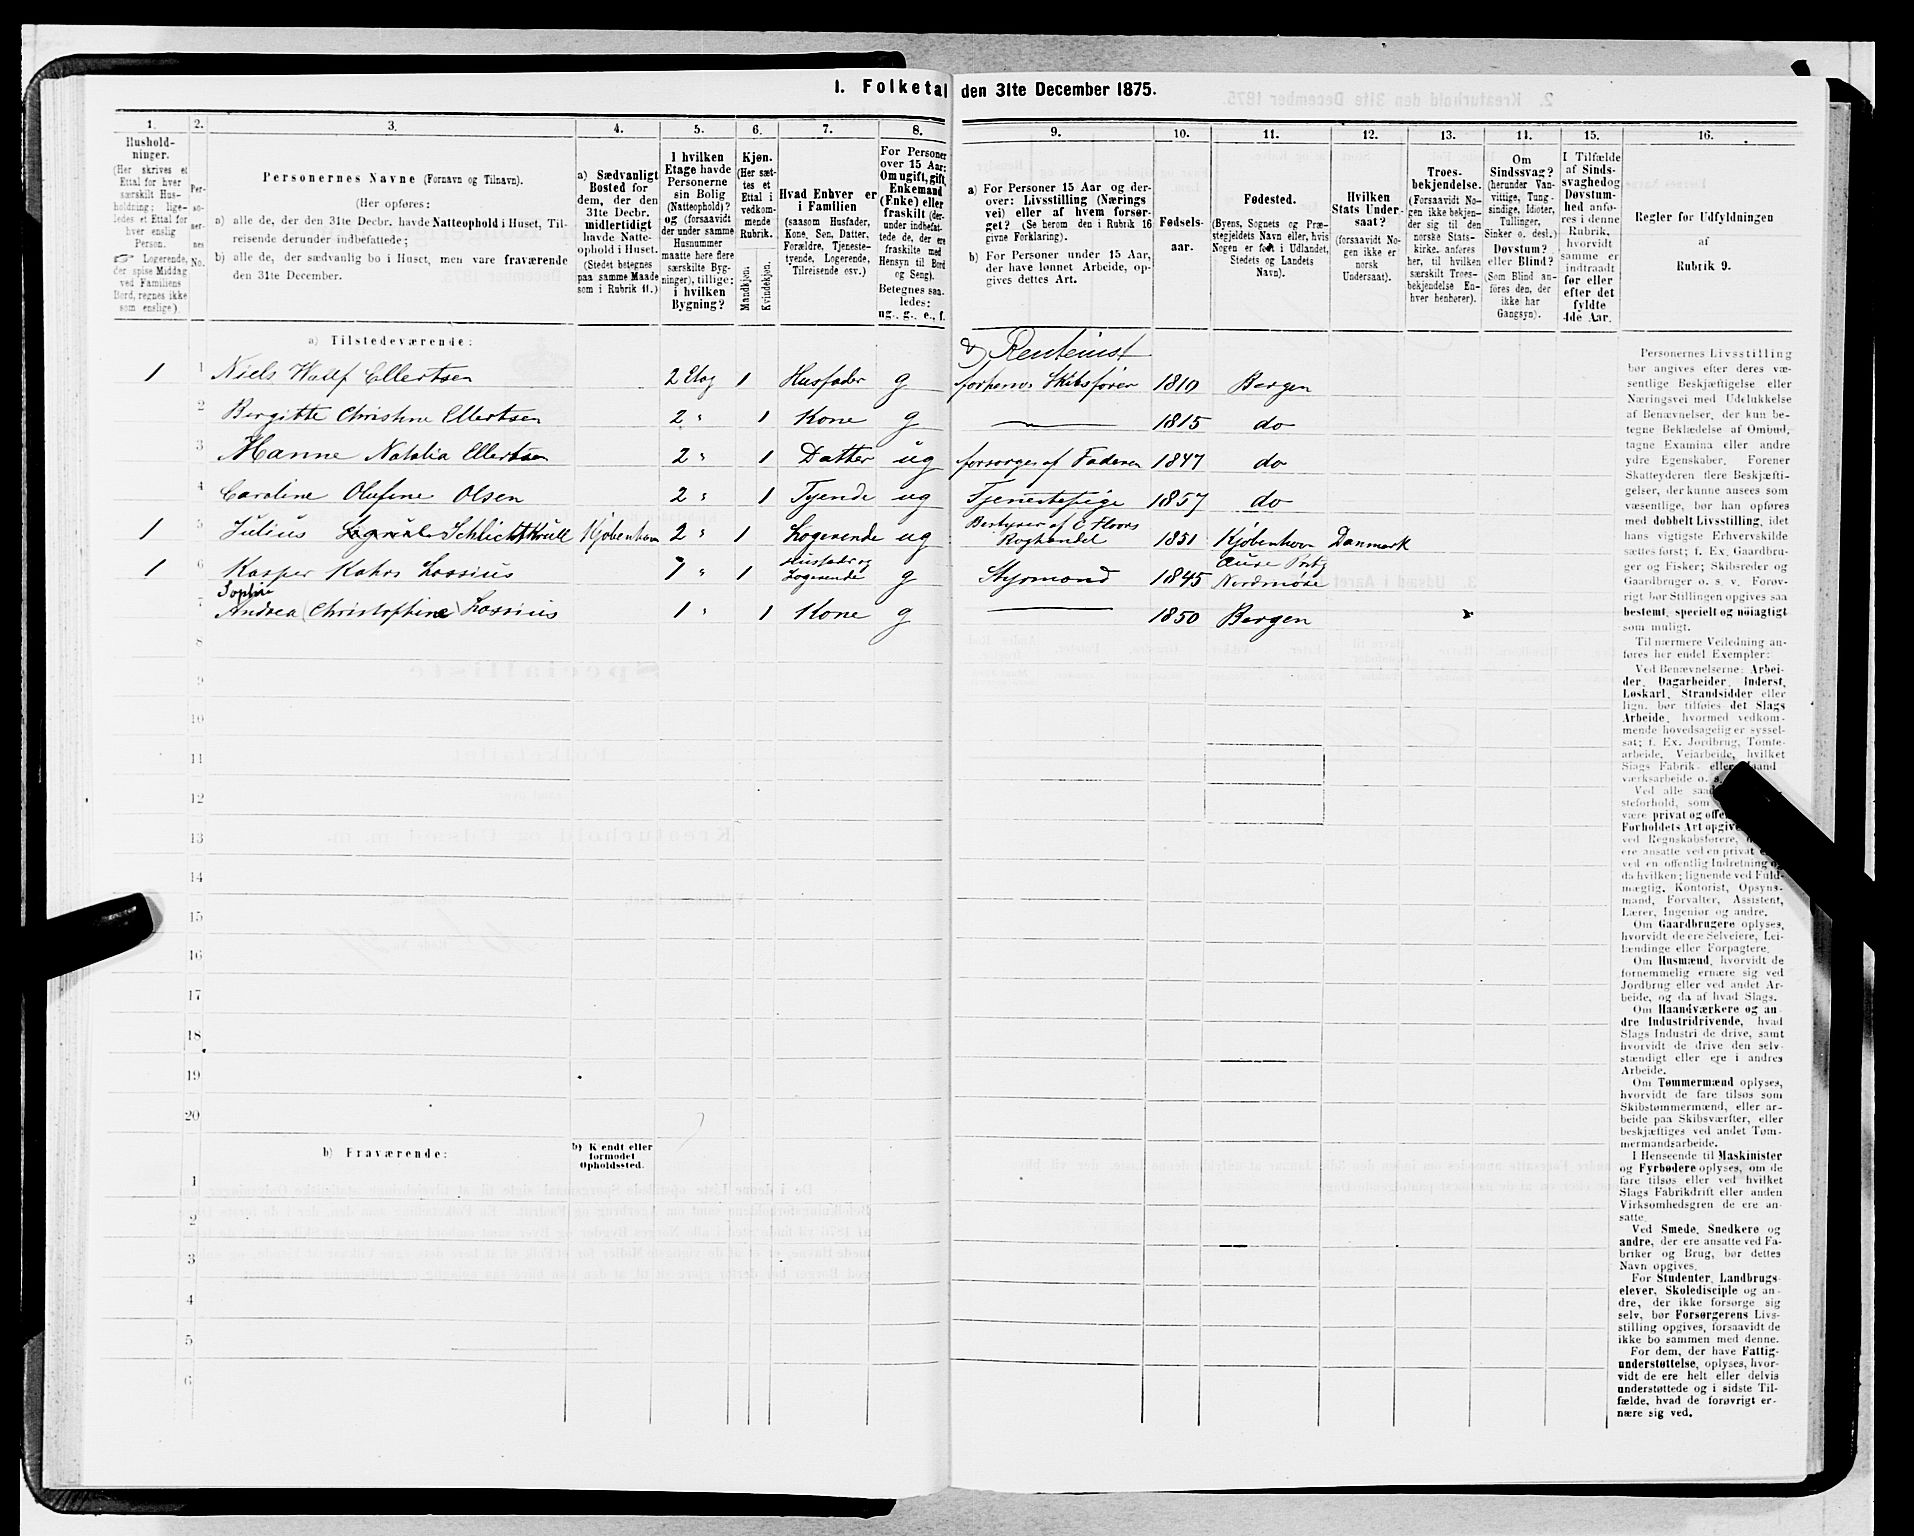 1. Folketal den 31te December 1875.
1. 2. 3. 4. 5. 6. 7. 8. 9. 10. 11. 12. 13. 14. 15. 16.
Husholdninger.
(Her skrives et
Ettal for hver
særskilt Husholdning; ligeledes et Ettal for
hver enslig
Person.
Logerende,
der spise Middag
ved Familiens
Bord, regnes ikke
som enslige).
Personernes No.
Personernes Navne (Fornavn og Tilnavn).
(Her opføres:
a) alle de, der den 31te Decbr. havde Natteophold i Huset, Tilreisende derunder indbefattede;
b) alle de, der sædvanlig bo i Huset, men vare fraværende
den 31te December.
a) Sædvanligt
Bosted for
dem, der den
31te Decbr.
midlertidigt
havde Natteophold i Huset.
(Stedet betegnes
paa samme Maade
som i Rubrik 11.)
I hvilken
Etage havde
Personerne
sin Bolig
(Natteophold)?
og (forsaavidt
der under samme
Husnummer
maatte høre flere
særskilte Bygninger), tillige:
i hvilken
Bygning?
Kjøn.
(Her sættes et
Ettal i
vedkommende
Rubrik.
Mandkjøn.
Kvindekjøn.
Hvad Enhver er
i Familien
(saasom Husfader,
Kone, Søn, Datter,
Forældre, Tjenestetyende, Logerende,
Tilreisende osv.)
For Personer
over 15 Aar:
Om ugift, gift,
Enkemand
(Enke) eller
fraskilt (derunder indbefattede de, der ere
fraskilte med
Hensyn til Bord
og Seng).
Betegnes saaledes:
ug., g., e., f.
a) For Personer 15 Aar og derover: Livsstilling (Nærings
vei) eller af hvem forsørget? (Se herom den i Rubrik 16
givne Forklaring).
b) For Personer under 15 Aar,
der have lønnet Arbeide, opgives dettes Art.
Fødselsaar.
Fødested.
(Byens, Sognets og Præstegjeldets Navn eller, hvis
Nogen er født i Udlandet,
Stedets og Landets
Navn).
Hvilken
Stats Undersaat?
(forsaavidt Nogen ikke er
norsk
Undersaat).
Troesbekjendelse.
(Forsaavidt Nogen ikke bekjender sig til den
norske Statskirke, anføres
her, til hvilken
særskilt Troesbekjendelse Enhver henhører).
Om
Sindssvag?
(herunder Vanvittige, Tungsindige, Idioter,
Tullinger,
Sinker o. desl.)
Døvstum?
eller Blind?
(Som Blind anføres den, der
ikke har
Gangsyn).
I Tilfælde
af Sindssvaghed og
Døvstumhed anføres i denne
Rubrik,
hvorvidt
samme er
indtraadt
før eller
efter det
fyldte
4de Aar.
Regler for Udfyldningen
af
Rubrik 9.
a) Tilstedeværende:
Renteinst
1 1 Niels Wolf Ellertsen 2 Etag 1 Husfader g forhenv Skibsfører 1810 Bergen
2 Bergitte Christine Ellertsen 2 " 1 Kone g 1815 do
3 Hanne Natalia Ellertsen 2 " 1 Datter ug forsørges af Faderen 1847 do
4 Caroline Olufine Olsen 2 " 1 Tyende ug Tjenestepige 1857 do
1 5 Julius Schlichtkrull Kjøbenhavn 2 " 1 Logerende ug Bestyrer af C Floors Boghandel 1851 Kjøbenhavn Danmark
1 6 Kasper Kahrs Lossius 1 " 1 Husfader og Logerende g Styrmand 1845 Aure Pretg Nordmøre
Sophie
7 Andrea (Christophine) Lossius 1 " 1 Kone g 1850 Bergen
8
9
10
11
12
13
14
15
16
17
18
19
20
b) Fraværende:
b) Kjendt eller
formodet
Opholdssted.
1
2
3
4
5
6
Personernes Livsstilling
bør angives efter deres væsentlige Beskjæftigelse eller
Næringsvei med Udelukkelse
af Benævnelser, der kun betegne Beklædelse af Ombud,
tagne Examina eller andre
ydre Egenskaber. Forener
Skatteyderen flere Beskjæftigelser, der kunne ansees som
væsentlige, bør han opføres
med dobbelt Livsstilling, idet
hans vigtigste Erhvervskilde
sættes først; f. Ex. Gaardbruger og Fisker; Skibsreder og
Gaardbruger o. s. v. Forøvrigt bør Stillingen opgives saa
bestemt, specielt og nøiagtigt
som muligt.
Til nærmere Veiledning anføres her endel Exempler:
Ved Benævnelserne: Arbeider, Dagarbeider, Inderst,
Løskarl, Strandsidder eller
lign. bør tilføies det Slags
Arbeide, hvormed vedkommende hovedsagelig er sysselsat; f. Ex. Jordbrug, Tomtearbeide, Veiarbeide, hvilket
Slags Fabrik- eller Haandværksarbeide o. s.
Ved alle
være privat og
Forholdets Art
ved Regnskabsførere,
ere ansatte ved en privat
ved en offentlig Indretning
da hvilken; lignende ved Fuldmægtig, Kontorist, Opsynsmand, Forvalter, Assistent,
Lærer, Ingeniør og andre.
Om Gaardbrugere oplyses,
hvorvidt de ere Selveiere, Leilændinge eller Forpagtere.
Om Husmænd, hvorvidt de
fornemmelig ernære sig ved
Jordbrug eller ved andet Arbeide, og da af hvad Slags.
Om Haandværkere og andre Industridrivende, hvad
Slags Industri de drive, samt
hvorvidt de drive den selvstændigt eller ere i andres
Arbeide.
Om Tømmermænd oplyses,
hvorvidt de fare tilsøs som
Skibstømmermænd, eller arbeide paa Skibsværfter, eller
beskjæftiges ved andet Tømmermandsarbeide.
I Henseende til Maskinister
og Fyrbødere oplyses, om de
fare tilsøs eller ved hvilket
Slags Fabrikdrift eller anden
Virksomhedsgren de ere ansatte.
Ved Smede, Snedkere og
andre, der ere ansatte ved Fabriker og Brug, bør dettes
Navn opgives.
For Studenter, Landbrugselever, Skoledisciple og andre, der ikke forsørge sig
selv, bør Forsørgerens Livsstilling opgives, forsaavidt de
ikke bo sammen med denne.
For dem, der have Fattigunderstøttelse, oplyses, hvorvidt de ere helt eller delvis
understøttede og i sidste Tilfælde, hvad de forøvrigt ernære sig ved.